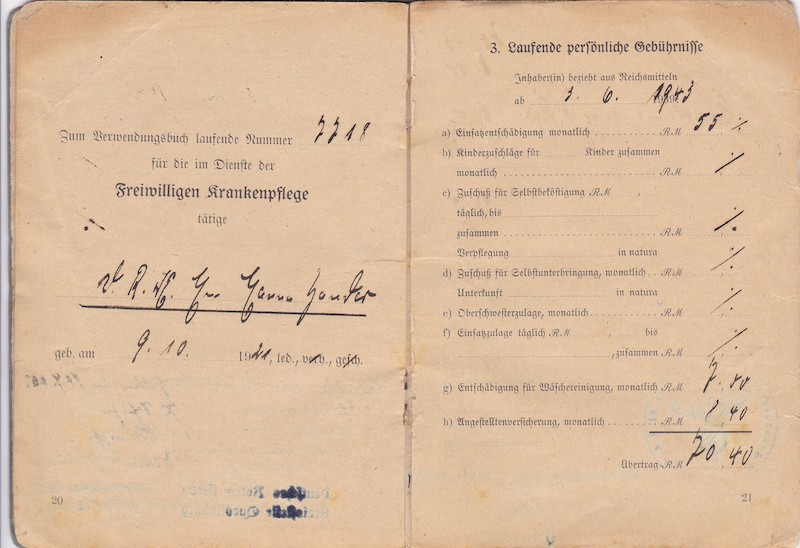 Zum Verwendungsbuch laufende Nummer 7718
für die im Dienste der
Freiwilligen Krankenpflege
tätige
geb. am 9. 10. 1921, led., verh., gesch.
20
3. Laufende persönliche Gebührnisse
Inhaber(in) bezieht aus Reichsmitteln
ab 3. 6. 1943
a) Einsatzentschädigung monatlich RM 55 %
b) Kinderzuschläge für Kinder zusammen
monatlich RM %
c) Zuschuß für Selbstbeköstigung RM ,
täglich, bis
zusammen RM %
Verpflegung in natura %
d) Zuschuß für Selbstunterbringung, monatlich RM
Unterkunft in natura
e) Oberschwesterzulage, monatlich RM %
f) Einsatzzulage täglich RM , bis
, zusammen RM %
g) Entschädigung für Wäschereinigung, monatlich RM 7.00
h) Angestelltenversicherung, monatlich RM 8.40
Übertrag RM 70.40
21